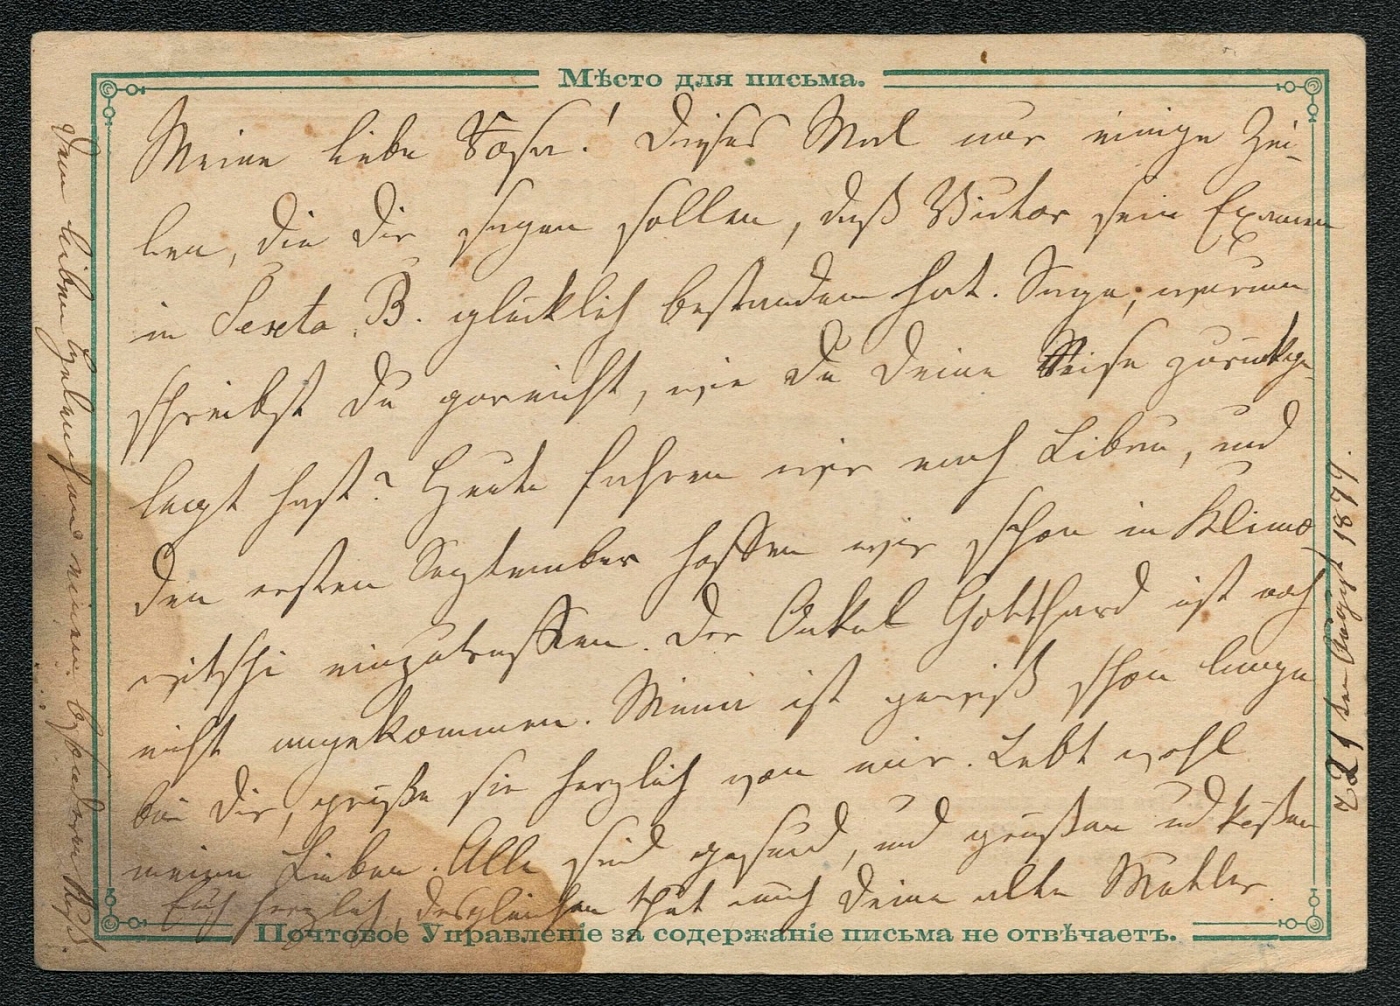 Мѣсто для письма.
Meine liebe Rosa! Dieses Mal nur einige Zei-
len, die Dir sagen sollen, daß Victor sein Examen
in Sexta B. glücklich bestanden hat. Sage, warum
schreibst Du garnicht, wie Du Deine Reise zurückge-
legt hast? Heute fahren wir nach Libau, und
den ersten September hoffen wir schon in Klimo
witschi einzutreffen. Der Onkel Gotthard ist noch
nicht angekommen. Minni ist gewiß schon lange
bei Dir, grüße sie herzlich von mir. Lebt wohl
meine Lieben. Alle sind gesund, und grüßen und küßen
Euch herzlich, desgleichen thut auch Deine alte Mutter.
Почтовое Управленіе за содержаніе письма не отвѣчаетъ.
Dem lieben meinen besonderen Kuß.
den August 1879.